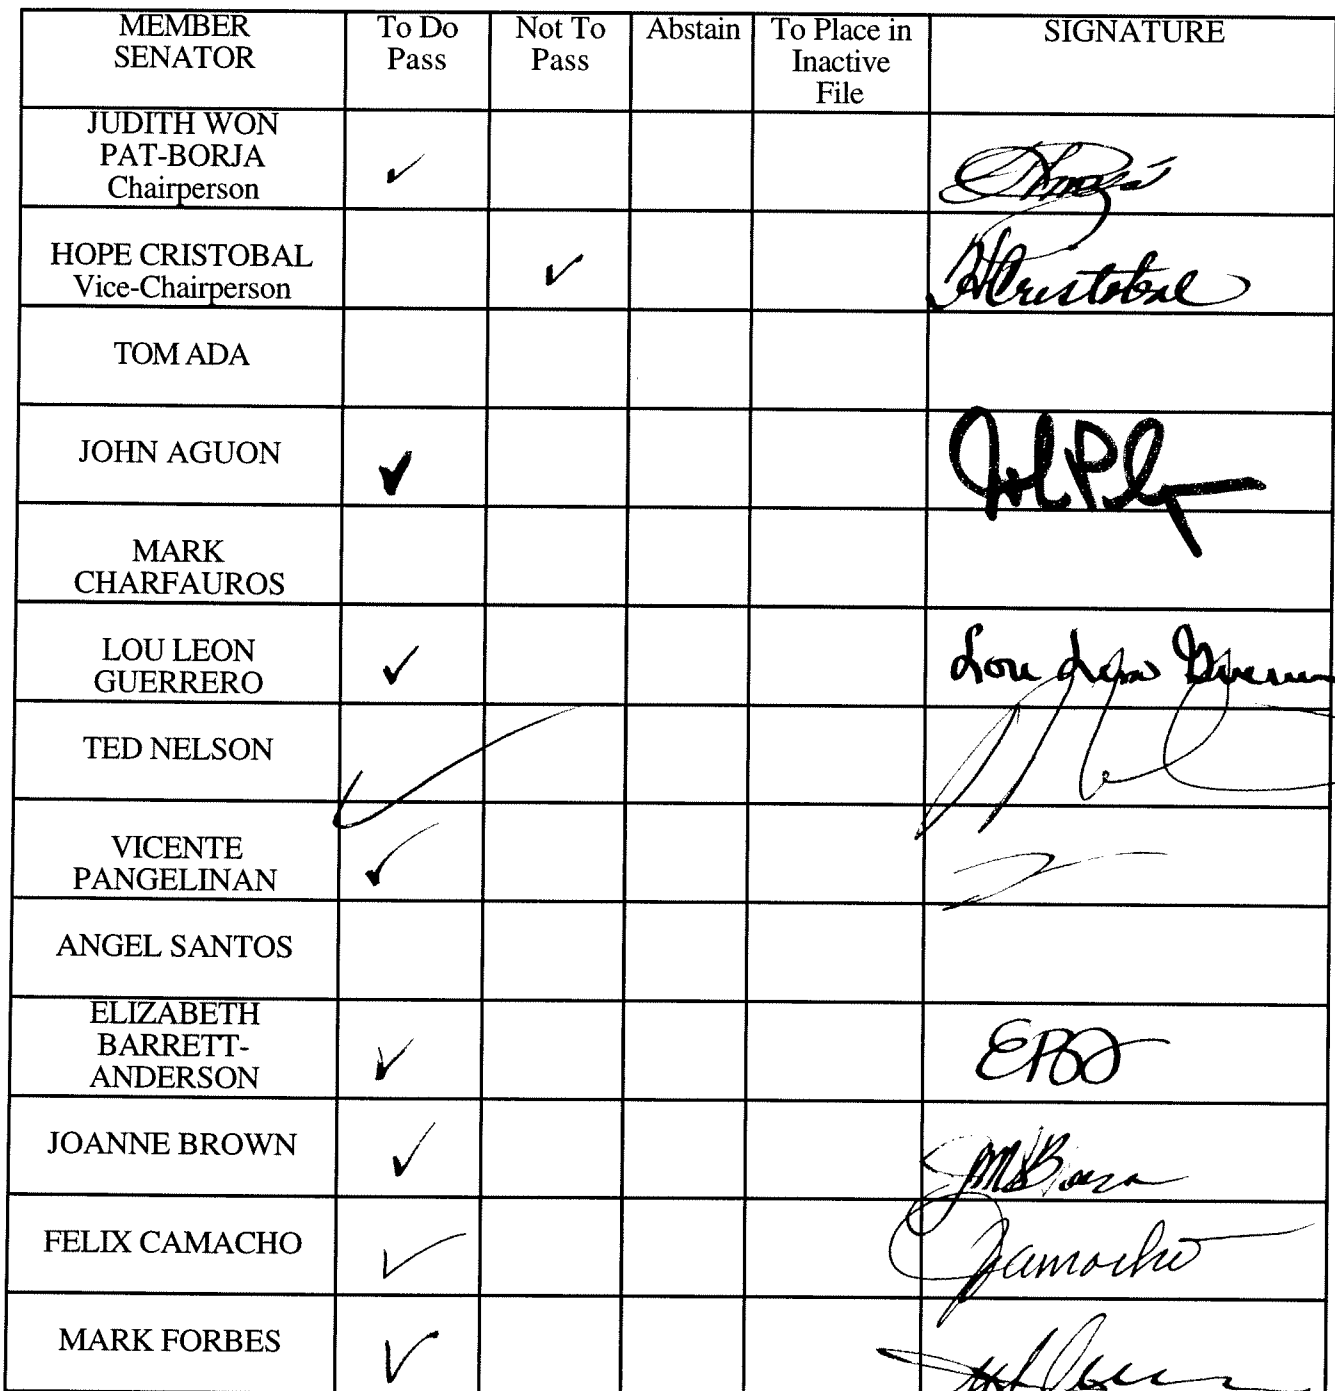 MEMBER SENATOR To Do Pass Not To Pass Abstain To Place in Inactive File SIGNATURE
JUDITH WON
PAT-BORJA
Chairperson ✓
HOPE CRISTOBAL
Vice-Chairperson ✓ HCristobal
TOM ADA
JOHN AGUON ✓
MARK
CHARFAUROS
LOU LEON
GUERRERO ✓ Lou Leon Guerrero
TED NELSON ✓
VICENTE
PANGELINAN ✓
ANGEL SANTOS
ELIZABETH
BARRETT-
ANDERSON ✓
JOANNE BROWN ✓
FELIX CAMACHO ✓ Camacho
MARK FORBES ✓